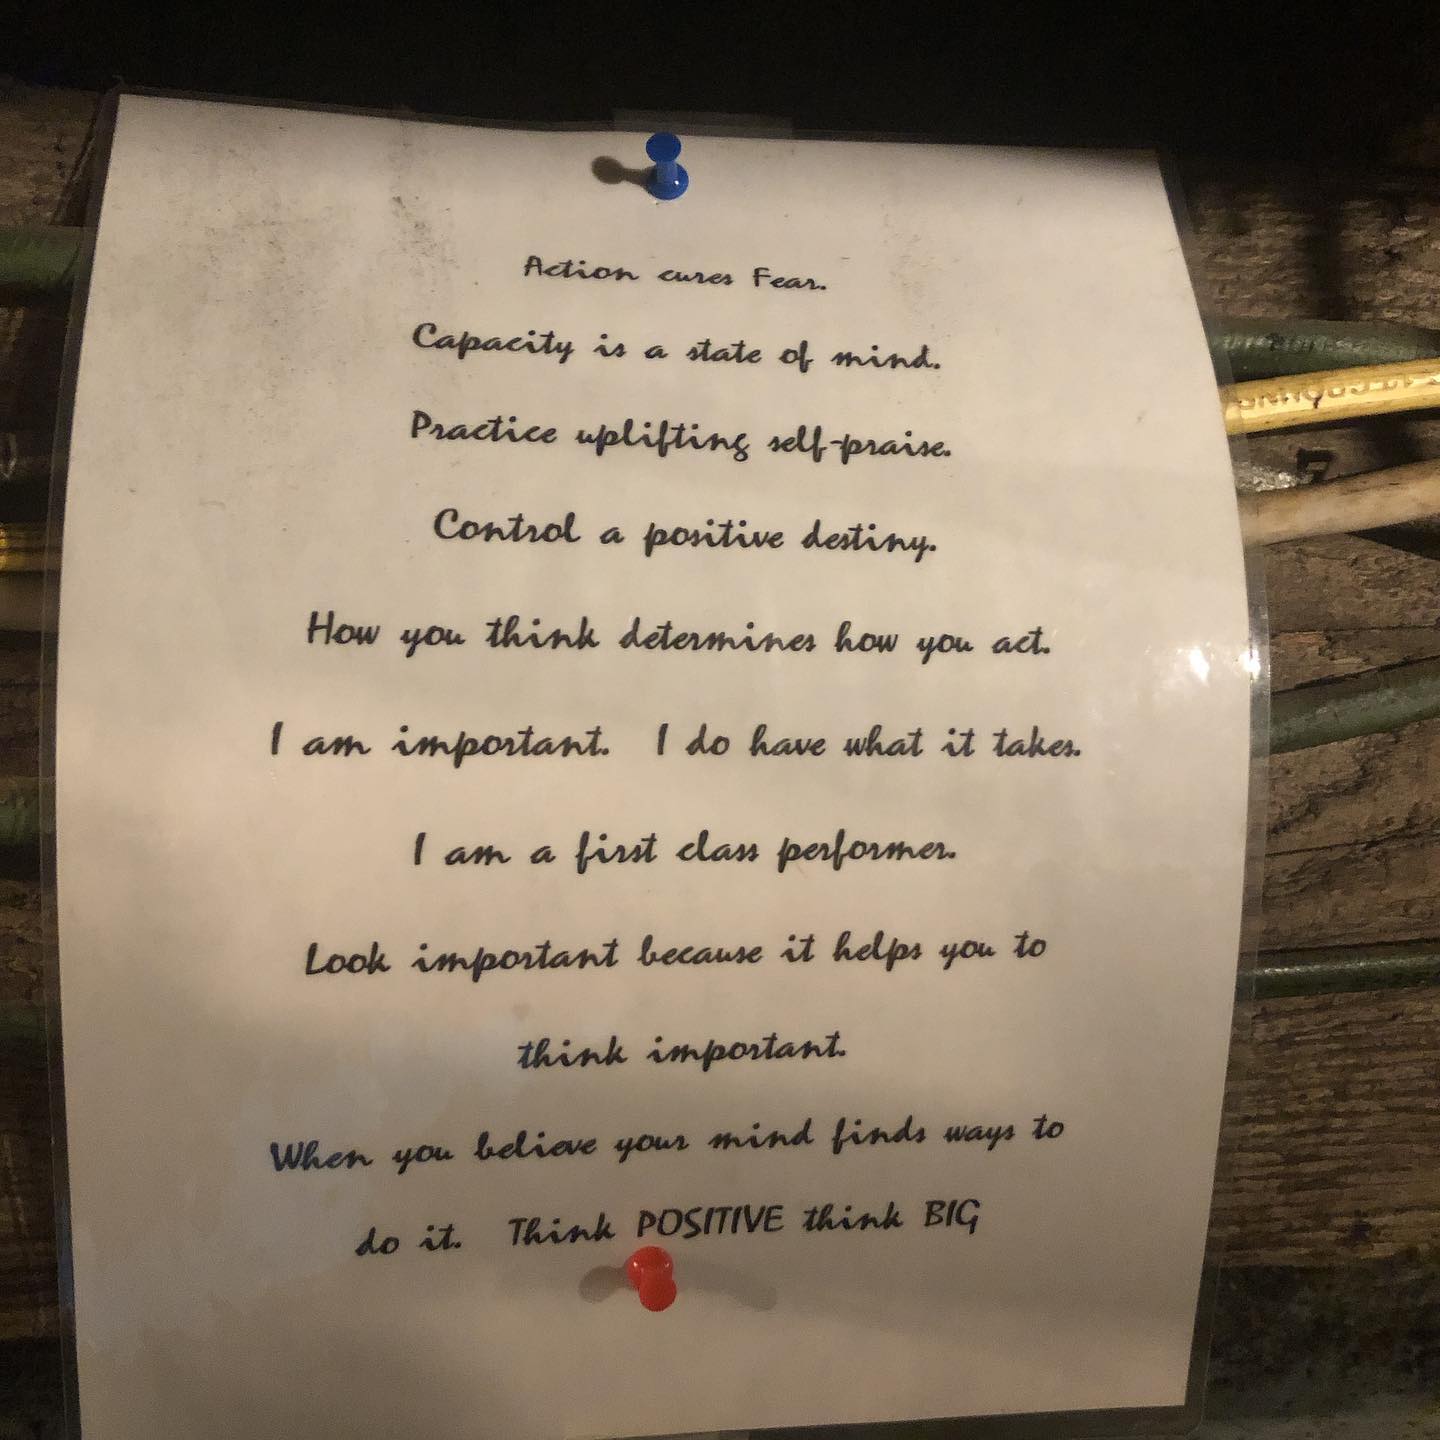 Action cures Fear.
Capacity is a state of mind.
Practice uplifting self-praise.
Control a positive destiny.
How you think determines how you act.
I am important. I do have what it takes.
I am a first class performer.
Look important because it helps you to
think important.
When you believe your mind finds ways to
do it. Think POSITIVE think BIG